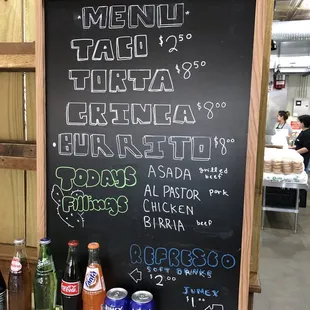 MENU
TACO $2.50
TORTA $8.50
GRINGA $8.00
BURRITO $8.00
Todays Filings
ASADA grilled beef
AL PASTOR pork
CHICKEN
BIRRIA beef
REFRESCO
SOFT DRINKS
$2.00
JUMEX
$1.00
Coca-Cola
Fanta